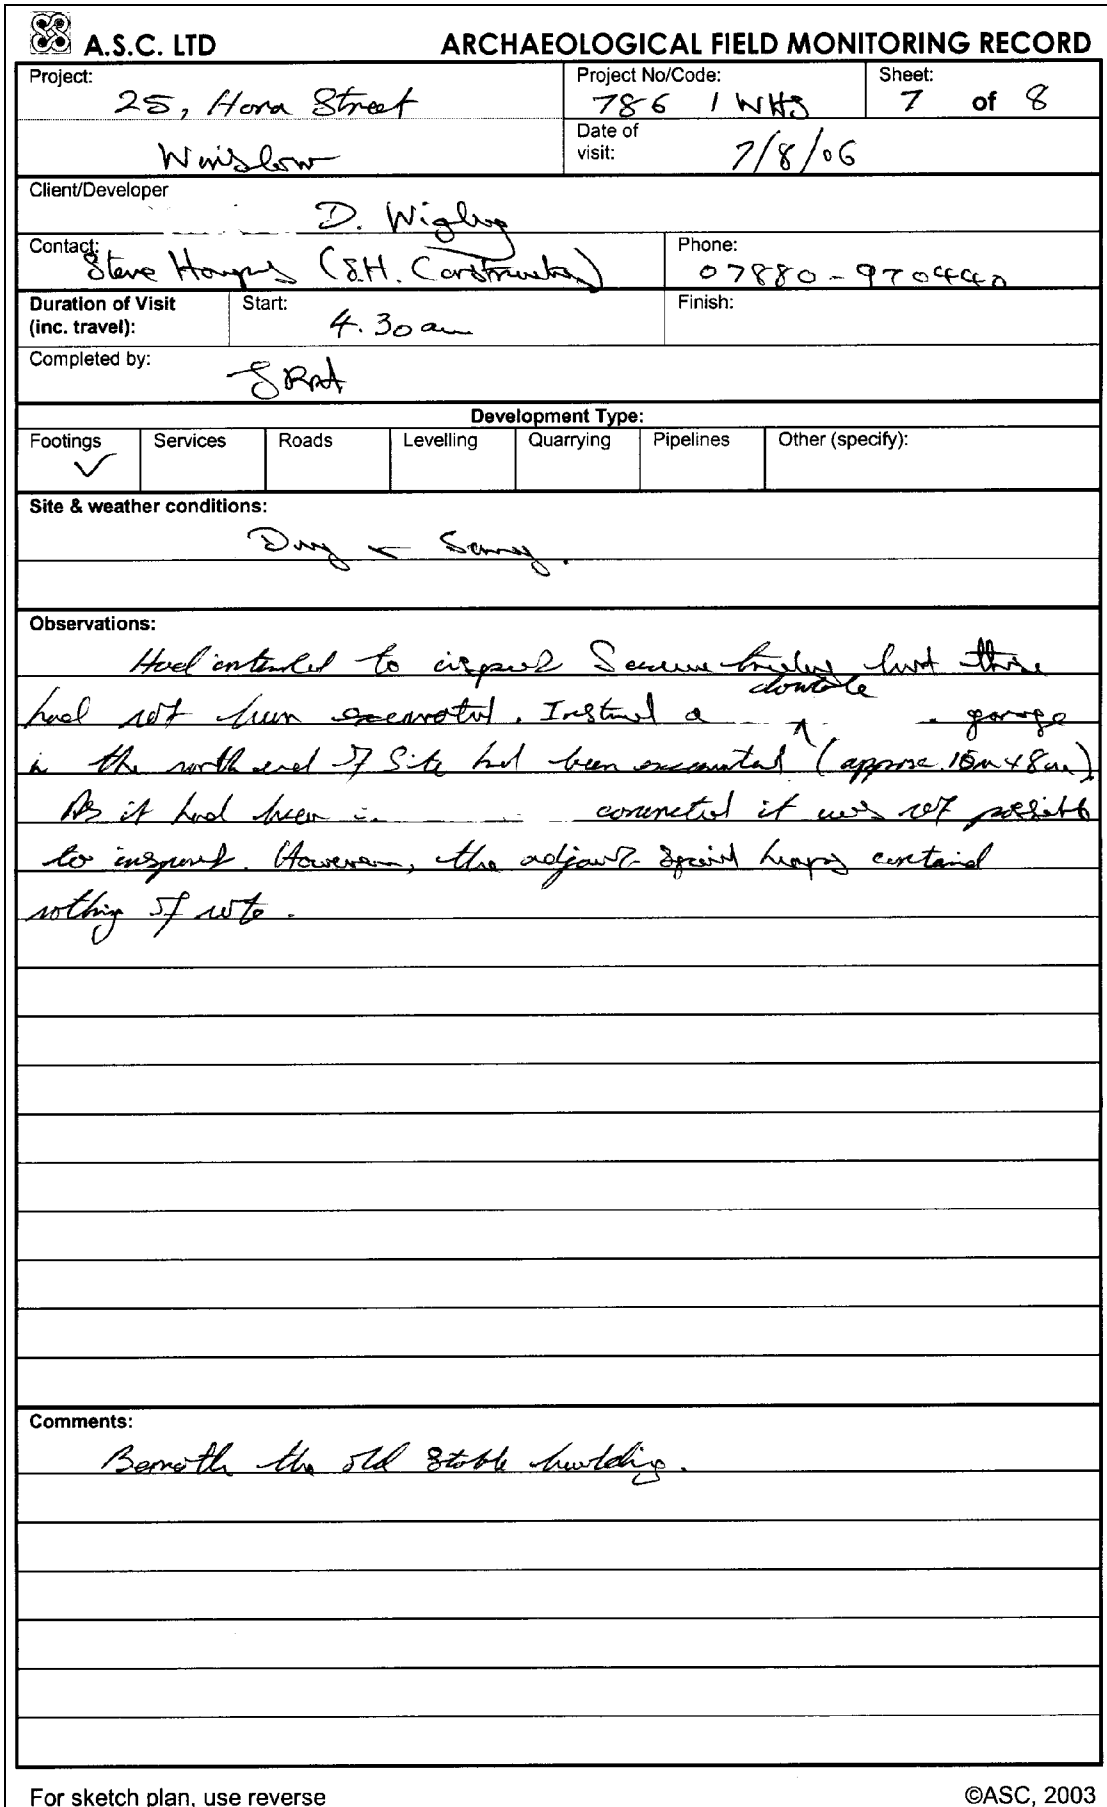 A.S.C. LTD ARCHAEOLOGICAL FIELD MONITORING RECORD
Project: 25, Horn Street
Winslow
Project No/Code: 786 / WHS
Sheet: 7 of 8
Date of visit: 7/8/06
Client/Developer D. Wigley
Contact: Steve (S.H. Construction)
Phone: 07880-970440
Duration of Visit (inc. travel):
Start: 4.30am
Finish:
Completed by:
Development Type:
Footings ✓ Services Roads Levelling Quarrying Pipelines Other (specify):
Site & weather conditions:
Dry + Sunny.
Observations:
Had intended to inspect but these
had not been excavated. Instead a double garage
in the north end of Site had been excavated (approx. 10m x 8m)
As it had been concreted it was not possible
to inspect. However, the adjacent spoil heaps contained
nothing of note.
Comments:
Beneath the old Stable building.
For sketch plan, use reverse
©ASC, 2003